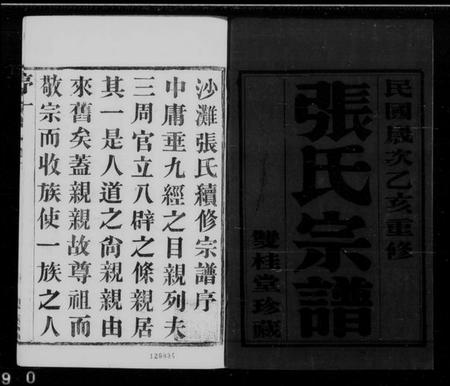 民國歲次乙亥重修
張氏宗譜
雙桂堂珍藏
沙灘張氏續修宗譜序
中庸垂九經之目親親列夫
三周官立八辟之條親居
其一是人道之尙親親由
來舊矣蓋親親故尊祖而
敬宗而收族使一族之人
序十
90